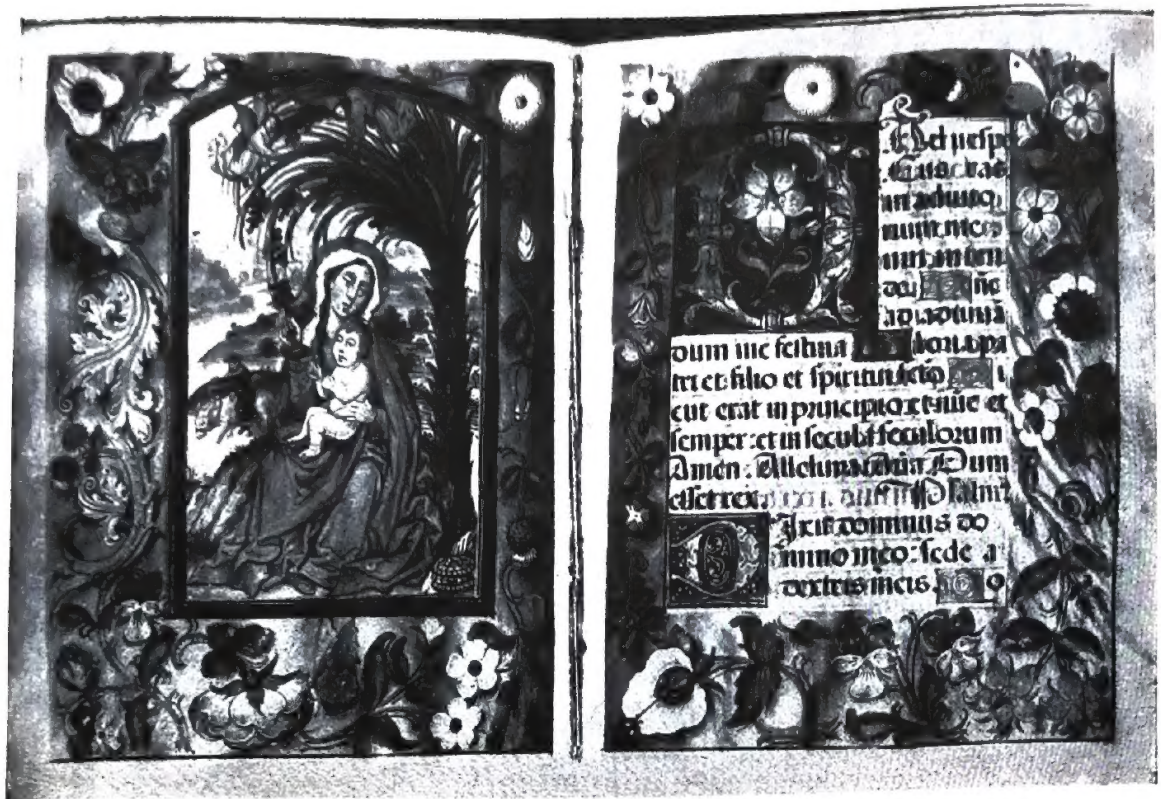 Ad vespe
Deus
in adiuto
rium meu
intende
Dñe
ad adiuuā
dum me festina loria pa
tri et filio et spiritui scto i
cut erat in principio et nūc et
semper: et in secula seculorum
Amen: Alleluia Dum
esset rex Psalm
Ixit dominus do
mino meo: sede a
dextris meis. O